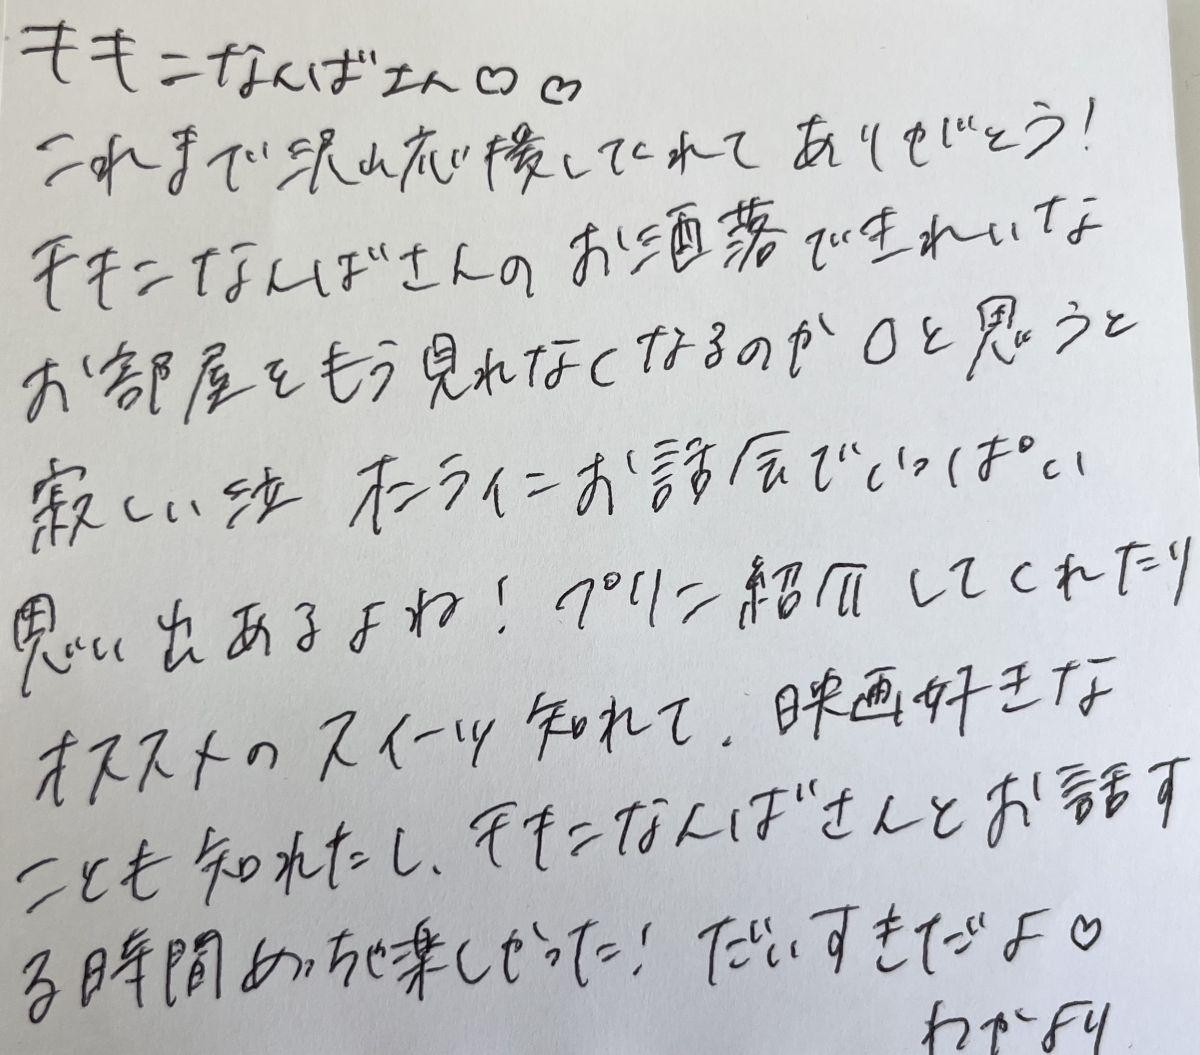 チキンなんばさん♡♡
これまで沢山応援してくれてありがとう!
チキンなんばさんのお洒落できれいな
お部屋をもう見れなくなるのか〇と思うと
寂しい泣 オンラインお話会でいっぱい
思い出あるよね! プリン紹介してくれたり
オススメのスイーツ知れて、映画好きな
ことも知れたし、チキンなんばさんとお話す
る時間めっちゃ楽しかった! だいすきだよ♡
わかより